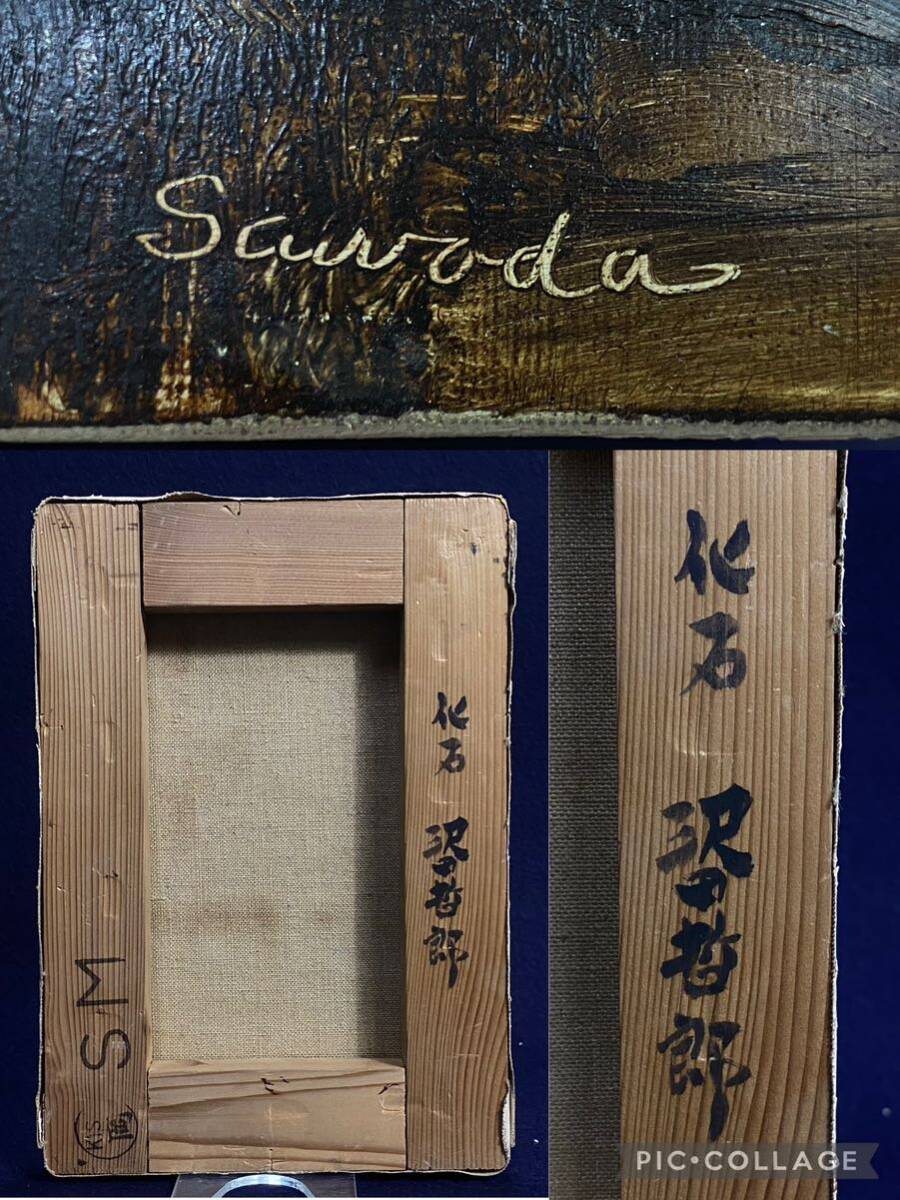 Sawoda
化石
沢田哲郎
SM
KIS
化石
沢田哲郎
PIC•COLLAGE